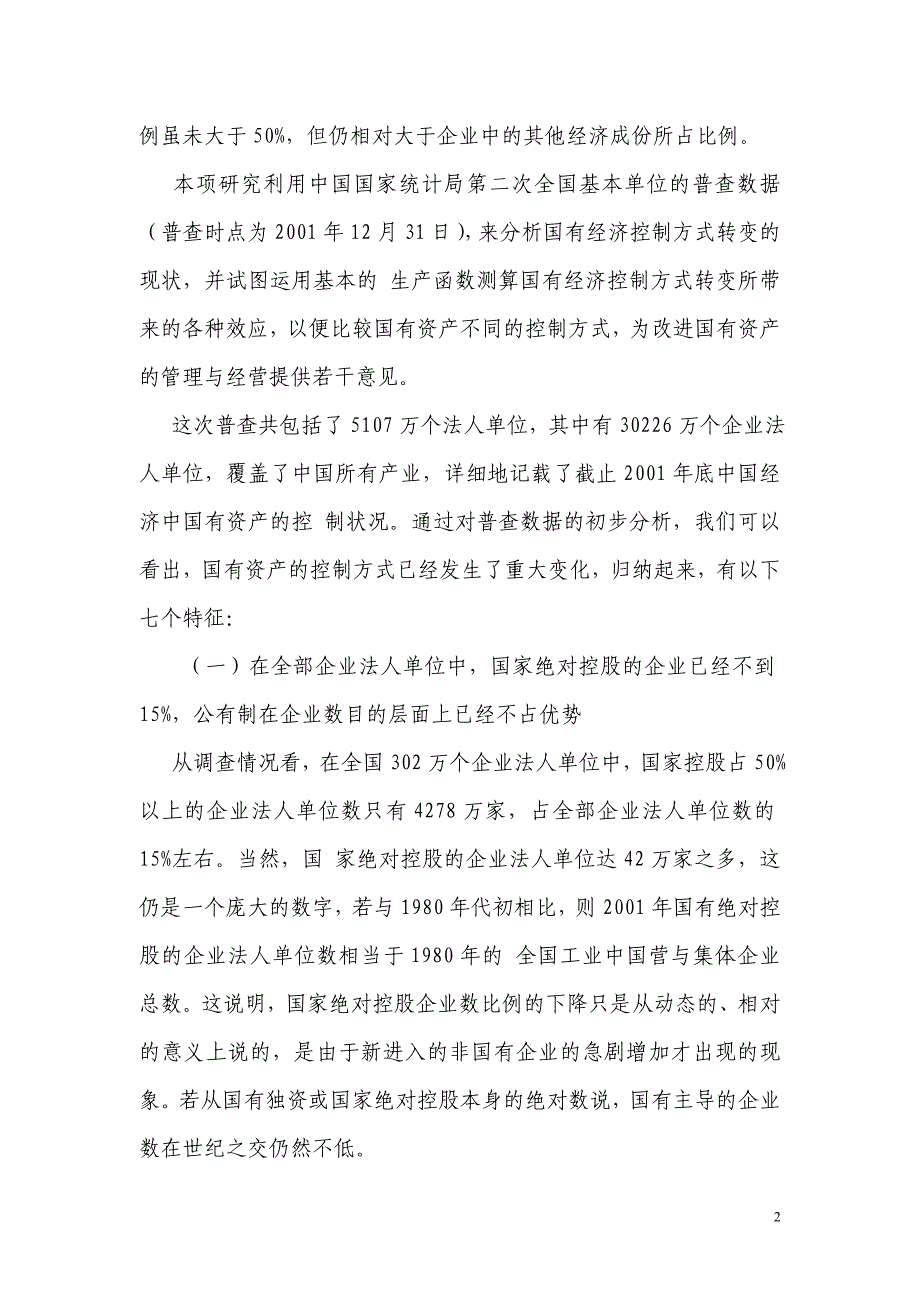 例虽未大于 50%，但仍相对大于企业中的其他经济成份所占比例。
本项研究利用中国国家统计局第二次全国基本单位的普查数据
（普查时点为 2001 年 12 月 31 日），来分析国有经济控制方式转变的
现状，并试图运用基本的 生产函数测算国有经济控制方式转变所带
来的各种效应，以便比较国有资产不同的控制方式，为改进国有资产
的管理与经营提供若干意见。
这次普查共包括了 5107 万个法人单位，其中有 30226 万个企业法
人单位，覆盖了中国所有产业，详细地记载了截止 2001 年底中国经
济中国有资产的控 制状况。通过对普查数据的初步分析，我们可以
看出，国有资产的控制方式已经发生了重大变化，归纳起来，有以下
七个特征：
（一）在全部企业法人单位中，国家绝对控股的企业已经不到
15%，公有制在企业数目的层面上已经不占优势
从调查情况看，在全国 302 万个企业法人单位中，国家控股占 50%
以上的企业法人单位数只有 4278 万家，占全部企业法人单位数的
15%左右。当然，国 家绝对控股的企业法人单位达 42 万家之多，这
仍是一个庞大的数字，若与 1980 年代初相比，则 2001 年国有绝对控
股的企业法人单位数相当于 1980 年的 全国工业中国营与集体企业
总数。这说明，国家绝对控股企业数比例的下降只是从动态的、相对
的意义上说的，是由于新进入的非国有企业的急剧增加才出现的现
象。若从国有独资或国家绝对控股本身的绝对数说，国有主导的企业
数在世纪之交仍然不低。
2